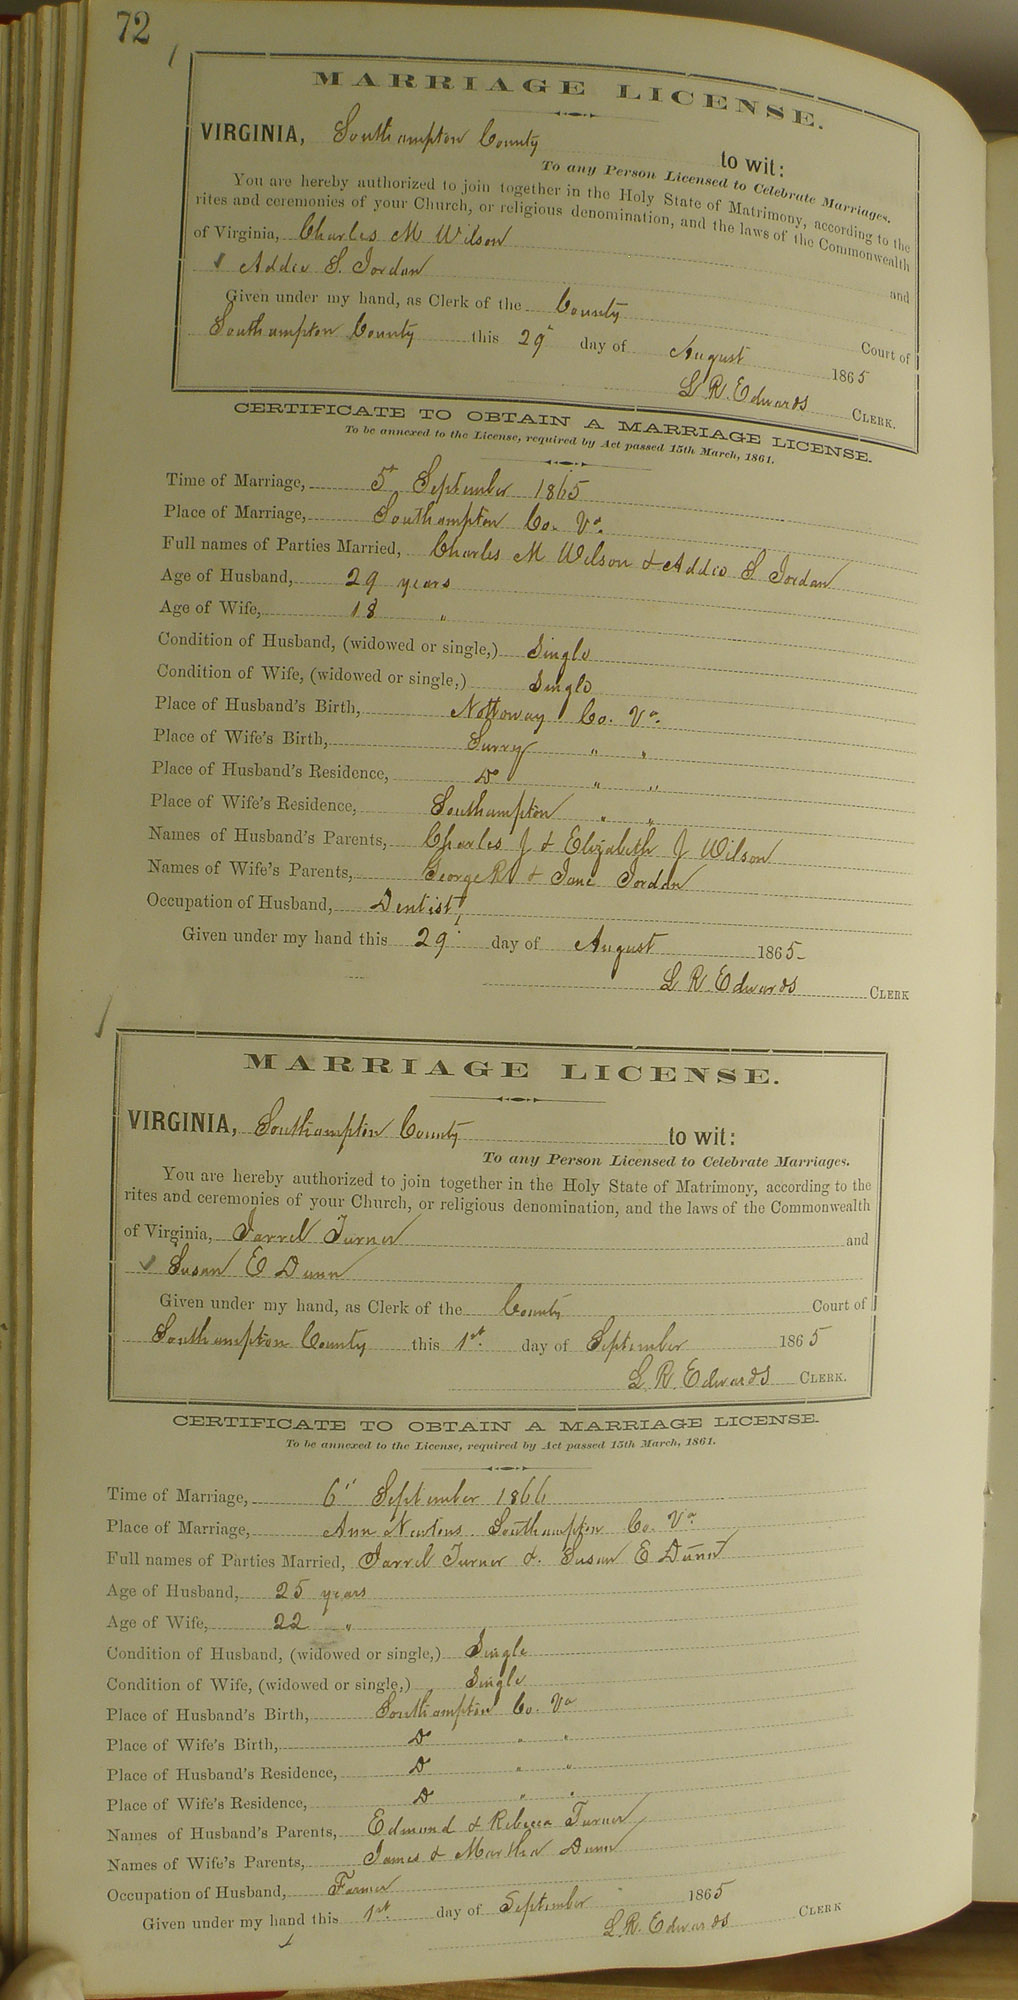 72
MARRIAGE LICENSE.
VIRGINIA, Southampton County to wit:
To any Person Licensed to Celebrate Marriages.
You are hereby authorized to join together in the Holy State of Matrimony, according to the
rites and ceremonies of your Church, or religious denomination, and the laws of the Commonwealth
of Virginia, Charles M Wilson and
Addie S. Jordan
Given under my hand, as Clerk of the County Court of
Southampton County this 29 day of August 1865
L R. Edwards CLERK.
CERTIFICATE TO OBTAIN A MARRIAGE LICENSE.
To be annexed to the License, required by Act passed 15th March, 1861.
Time of Marriage, 5th September 1865
Place of Marriage, Southampton Co. Va.
Full names of Parties Married, Charles M Wilson & Addie S Jordan
Age of Husband, 29 years
Age of Wife, 18 "
Condition of Husband, (widowed or single,) Single
Condition of Wife, (widowed or single,) Single
Place of Husband's Birth, Nottoway Co. Va.
Place of Wife's Birth, Surry " "
Place of Husband's Residence, Do " "
Place of Wife's Residence, Southampton " "
Names of Husband's Parents, Charles J & Elizabeth J Wilson
Names of Wife's Parents, George R & Jane Jordan
Occupation of Husband, Dentist
Given under my hand this 29 day of August 1865
L R Edwards CLERK
MARRIAGE LICENSE.
VIRGINIA, Southampton County to wit:
To any Person Licensed to Celebrate Marriages.
You are hereby authorized to join together in the Holy State of Matrimony, according to the
rites and ceremonies of your Church, or religious denomination, and the laws of the Commonwealth
of Virginia, Jarrel Turner and
Susan E Dunn
Given under my hand, as Clerk of the County Court of
Southampton County this 1st day of September 1865
L R. Edwards CLERK.
CERTIFICATE TO OBTAIN A MARRIAGE LICENSE.
To be annexed to the License, required by Act passed 15th March, 1861.
Time of Marriage, 6" September 1866
Place of Marriage, Ann Newtons Southampton Co. Va
Full names of Parties Married, Jarrel Turner & Susan E Dunn
Age of Husband, 25 years
Age of Wife, 22 "
Condition of Husband, (widowed or single,) Single
Condition of Wife, (widowed or single,) Single
Place of Husband's Birth, Southampton Co. Va
Place of Wife's Birth, Do " "
Place of Husband's Residence, Do " "
Place of Wife's Residence, Do " "
Names of Husband's Parents, Edmond & Rebecca Turner
Names of Wife's Parents, James & Martha Dunn
Occupation of Husband, Farmer
Given under my hand this 1st day of September 1865
L. R. Edwards CLERK